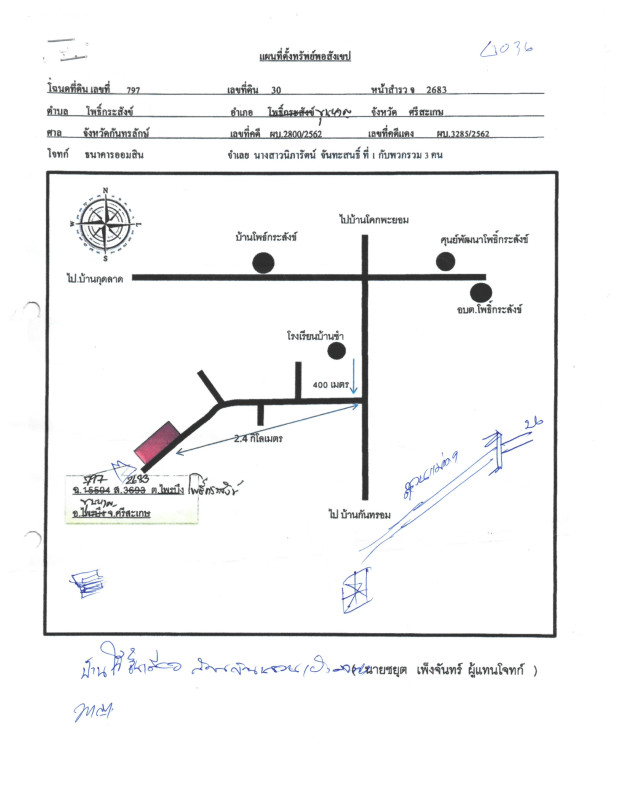 036
แผนที่ตั้งทรัพย์พอสังเขป
โฉนดที่ดิน เลขที่ 797 เลขที่ดิน 30 หน้าสำรวจ 2683
ตำบล โพธิ์กระสังข์ อำเภอ โพธิ์กระสังข์ ขุนหาญ จังหวัด ศรีสะเกษ
ศาล จังหวัดกันทรลักษ์ เลขที่คดี ผบ.2800/2562 เลขที่คดีแดง ผบ.3285/2562
โจทก์ ธนาคารออมสิน จำเลย นางสาวนิภารัตน์ จันทะสนธิ์ ที่ 1 กับพวกรวม 3 คน
N
W
S
ไปบ้านโคกพะยอม
บ้านโพธิ์กระสังข์
ศูนย์พัฒนาโพธิ์กระสังข์
ไป.บ้านกุดลาด
อบต.โพธิ์กระสังข์
โรงเรียนบ้านซำ
400 เมตร
2.4 กิโลเมตร
26
797 2683
ฉ.15504 ส.3693 ต.ไพรบึง โพธิ์กระสังข์
ขุนหาญ
อ.ไพรบึง จ.ศรีสะเกษ
ไป บ้านกันทรอม
นายชยุต เพ็งจันทร์ ผู้แทนโจทก์ )